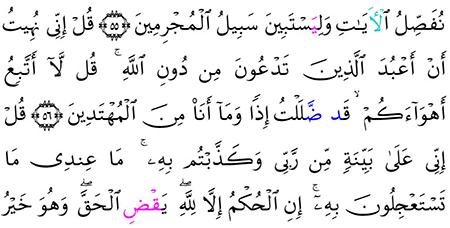 نُفَصِّلُ ٱلْأَيَٰتِ وَلِيَسْتَبِينَ سَبِيلُ ٱلْمُجْرِمِينَ ۝٥٥ قُلْ إِنِّى نُهِيتُ
أَنْ أَعْبُدَ ٱلَّذِينَ تَدْعُونَ مِن دُونِ ٱللَّهِ ۚ قُل لَّآ أَتَّبِعُ
أَهْوَآءَكُمْ ۙ قَد ضَّلَلْتُ إِذًا وَمَآ أَنَا۠ مِنَ ٱلْمُهْتَدِينَ ۝٥٦ قُلْ
إِنِّى عَلَىٰ بَيِّنَةٍ مِّن رَّبِّى وَكَذَّبْتُم بِهِۦ ۚ مَا عِندِى مَا
تَسْتَعْجِلُونَ بِهِۦٓ ۚ إِنِ ٱلْحُكْمُ إِلَّا لِلَّهِ ۖ يَقْضِ ٱلْحَقَّ ۖ وَهُوَ خَيْرُ